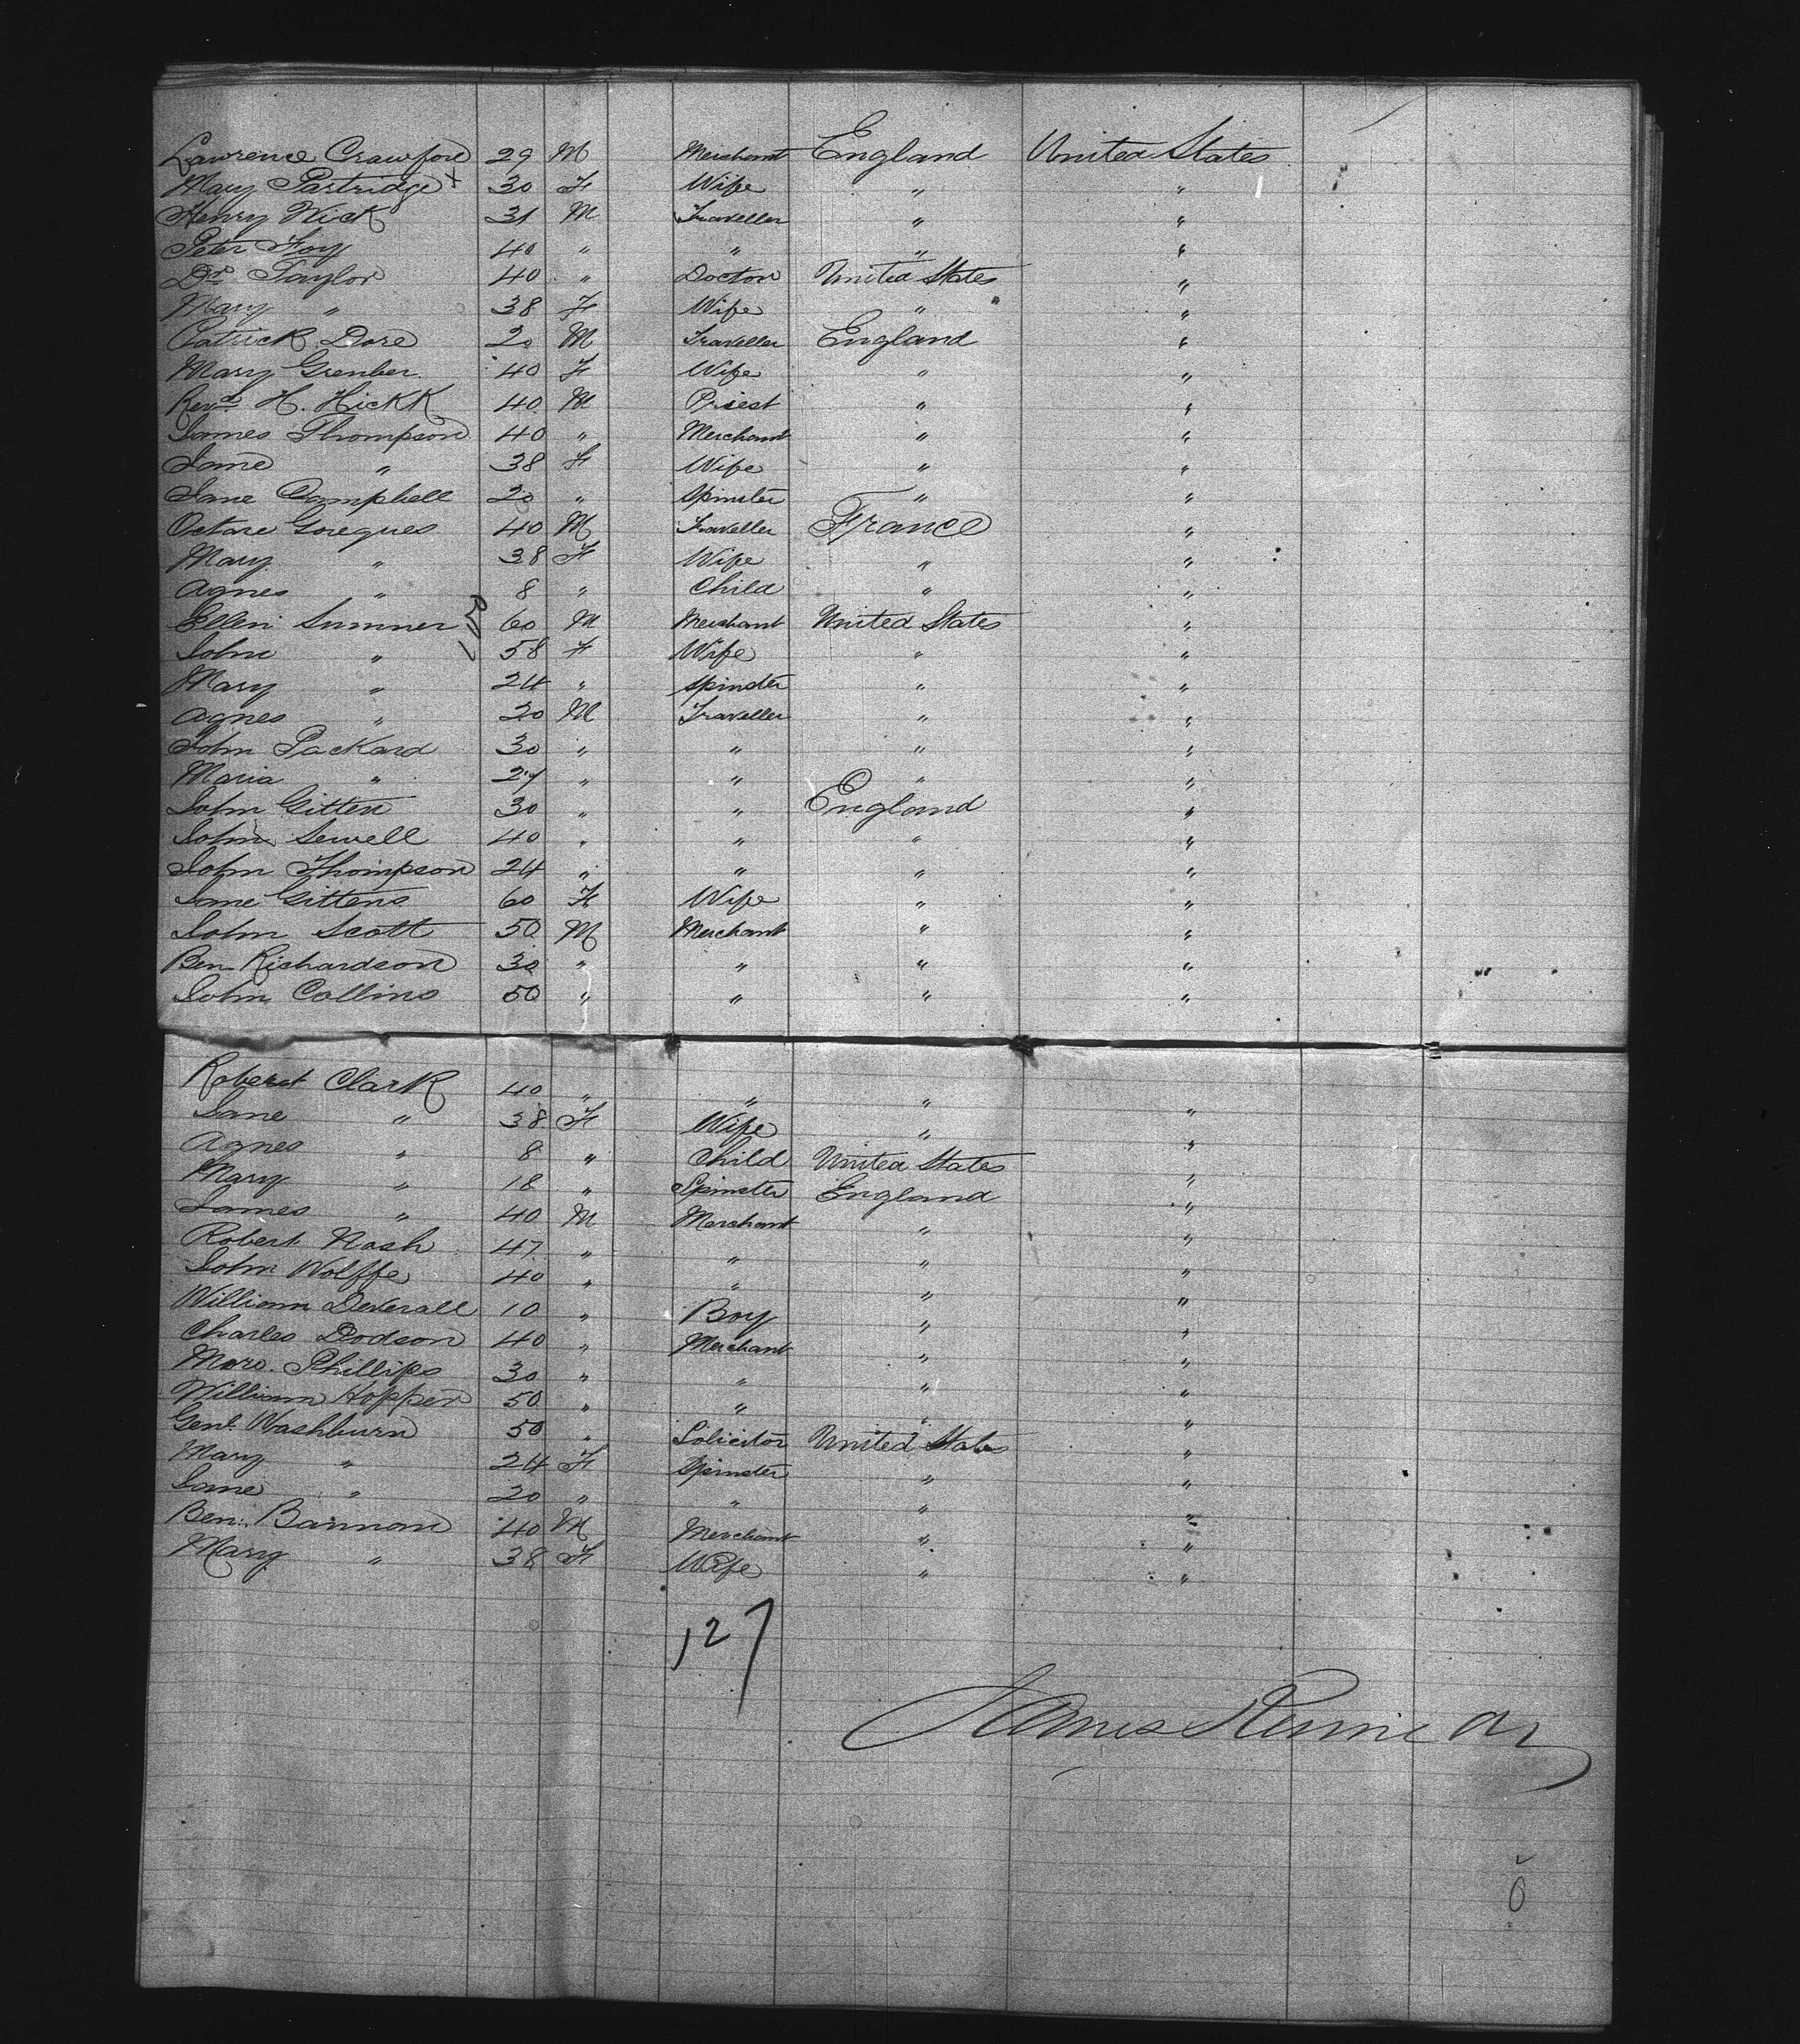 Lawrence Crawford 29 M Merchant England United States
Mary Partridge x 30 F Wife " "
Henry Wick 31 M Traveller " "
Peter Foy 40 " " " "
Dr Taylor 40 " Doctor United States "
Mary " 38 F Wife " "
Patrick Dore 20 M Traveller England "
Mary Grenber 40 F Wife " "
Revd H. Hickk 40 M Priest " "
James Thompson 40 " Merchant " "
Jane " 38 F Wife " "
Jane Campbell 20 " Spinster " "
Octave Goregues 40 M Traveller France "
Mary " 38 F Wife " "
Agnes " 8 " Child " "
Ellen Sumner 60 M Merchant United States "
John " 58 F Wife " "
Mary " 24 " Spinster " "
Agnes " 20 M Traveller " "
John Packard 30 " " " "
Maria " 27 " " " "
John Gitten 30 " " England "
John Sewell 40 " " " "
John Thompson 24 " " " "
Jane Gittens 60 F Wife " "
John Scott 50 M Merchant " "
Ben Richardson 30 " " " "
John Collins 50 " " " "
Robert Clark 40 " " " "
Jane " 38 F Wife " "
Agnes " 8 " Child United States "
Mary " 18 " Spinster England "
James " 40 M Merchant " "
Robert Nash 47 " " " "
John Wolffe 40 " " " "
William Deverall 10 " Boy " "
Charles Dodson 40 " Merchant " "
Phillips 30 " " " "
William Hopper 50 " " " "
Genl. Washburn 50 " Solicitor United States "
Mary " 24 F Spinster " "
Jane " 20 " " " "
Ben: Bannon 40 M Merchant " "
Mary " 38 F Wife " "
127
James